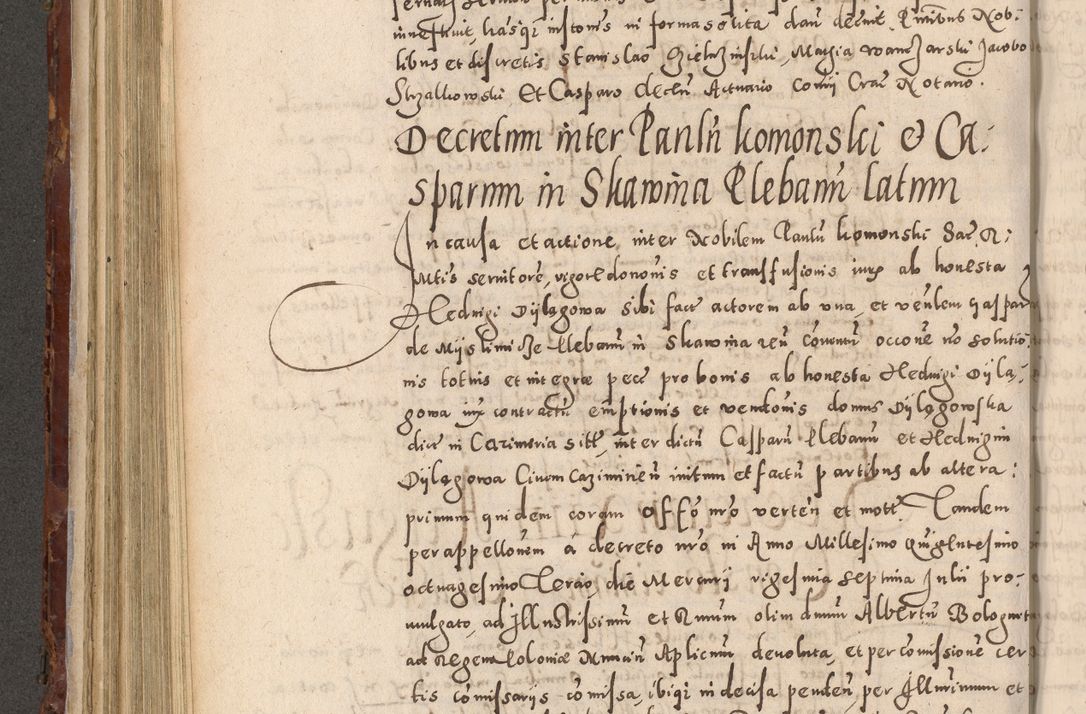 innestiuit, hasqs insertoris in forma solita dari decreuit. Pntibus Nobi:
libus et discretis Stanislao Gielczinski, Mathia Wanczarski Jacobo
Strzalkowski Et Casparo dechn Actuario Comi Crac Notario.
Decretum inter Paulū komonski & Ca:
sparum in Skawina Plebanū latum
In causa et actione inter Nobilem Paulū komonski Sac R:
Mtis seruitore, vigore dononis et transfusionis iurx ab honesta
Hedwigi Dylągowa sibi fact actorem ab vna, et venlem Gaspar
de Myslimicze Plebanū in Skawina reū conuentū occone no solutio:
nis totius et integræ pecc pro bonis ab honesta Hedwigi Dyla:
gowa iux contractū emptionis et venditionis domus Dylągowska
dict in Cazimiria sitt, inter dictū Casparū Plebanū et Hedwigim
Dylągowa Ciuem Cazimirien initum et factū partibus ab altera:
primum quidem coram offo nro verten et mott. Tandem
per appellonem à decreto nro in Anno Millesimo Quigentesimo
octuagesimo Tercio, die Mercurij vigesima septima Julii pro:
mulgato, ad Illustrissimū et Rmum olim dnum Albertū Bolognet
ad Regem Poloniæ Nunciū Aplicum deuoluta, et per comissione cer
tis comissarijs comissa, ibiqs indecisa penden, per Illmrimum et